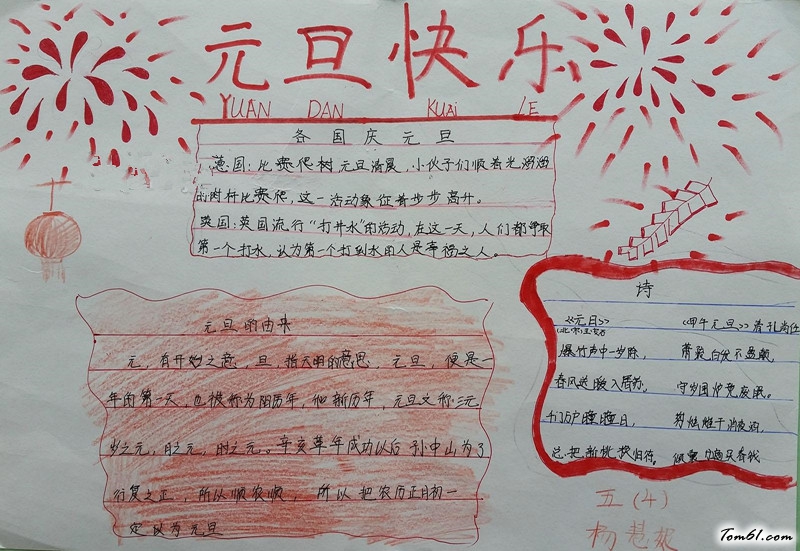 元旦快乐
YUAN DAN KUai LE
各国庆元旦
德国:比赛爬树 元旦清晨,小伙子们顺着光溜溜
的树杆比赛爬,这一活动象征着步步高升。
英国:英国流行“打井水”的活动,在这一天,人们都争取
第一个打水,认为第一个打到水的人是幸福之人。
元旦的由来
元,有开始之意,旦,指天明的意思,元旦,便是一
年的第一天,也被称为阳历年,新历年,元旦又称:三元
岁之元,月之元,时之元。辛亥革年成功以后 孙中山为了
行夏之正,所以顺农顺, 所以把农历正月初一
定以为元旦
诗
《元日》
(北宋王安石)
爆竹声中一岁除,
春风送暖入屠苏。
千门万户曈曈日,
总把新桃换旧符。
《甲午元旦》 清 孔尚任
萧疏白发不盈颠,
守岁围炉竟废眠。
剪烛催干消夜酒,
五(4)
杨慧
Tom61.com